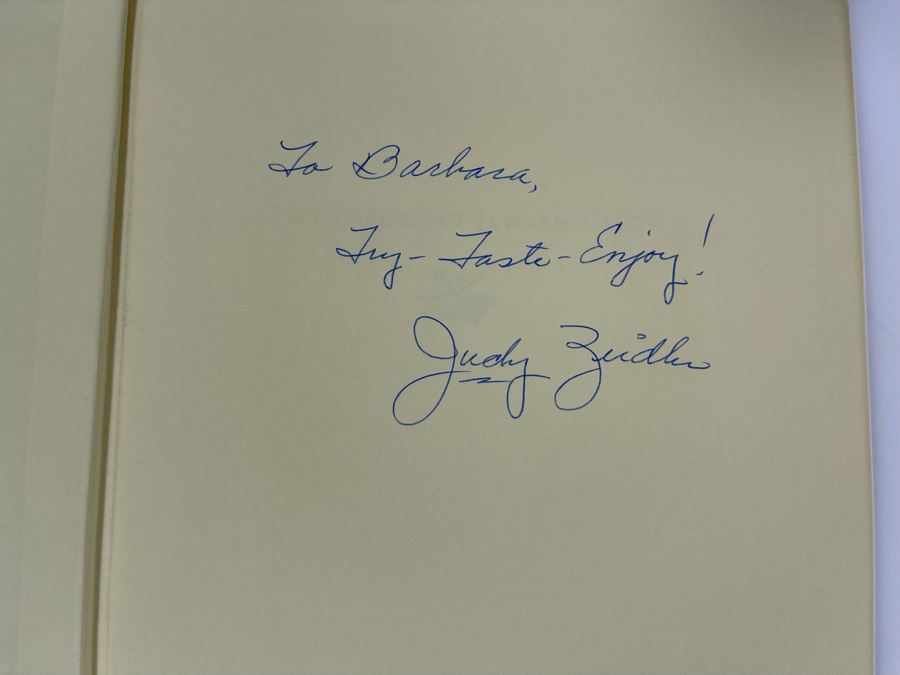 To Barbara,
Try - Taste - Enjoy!
Judy Zeidler